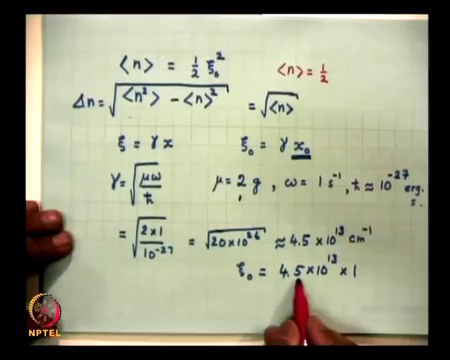 <n> = 1/2 ξ₀²    <n> = 1/2
Δn = √(<n²> - <n>²)    = √<n>
ξ = γx    ξ₀ = γ x₀
γ = √(μω/ħ)    μ = 2 g , ω = 1 s⁻¹, ħ ≈ 10⁻²⁷ erg. s.
= √(2×1/10⁻²⁷) = √(20×10²⁶) ≈ 4.5 × 10¹³ cm⁻¹
ξ₀ = 4.5 × 10¹³ × 1
NPTEL